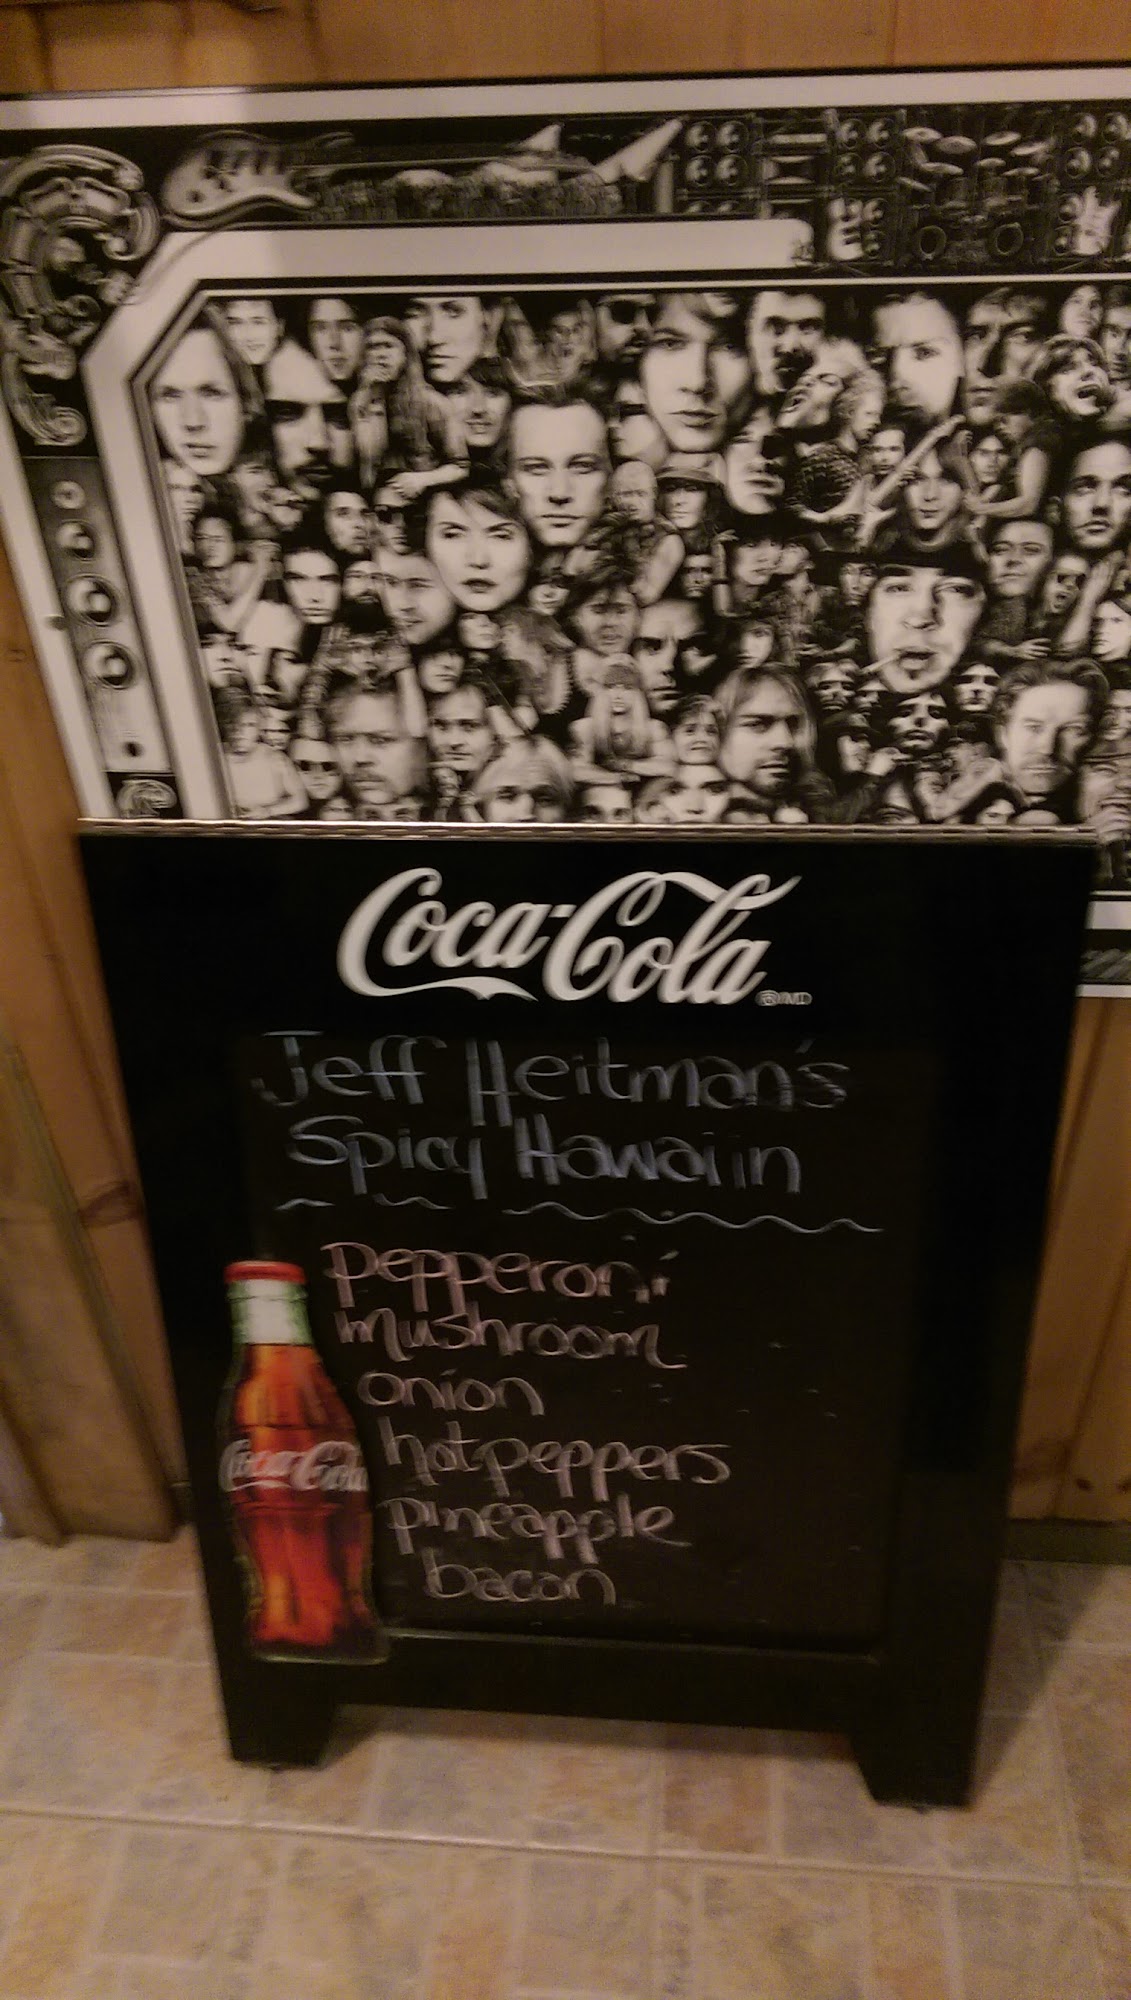 Coca-Cola
®/MD
Jeff Heitman's
Spicy Hawaiin
pepperoni
mushroom
onion
hot peppers
pineapple
bacon
Coca-Cola